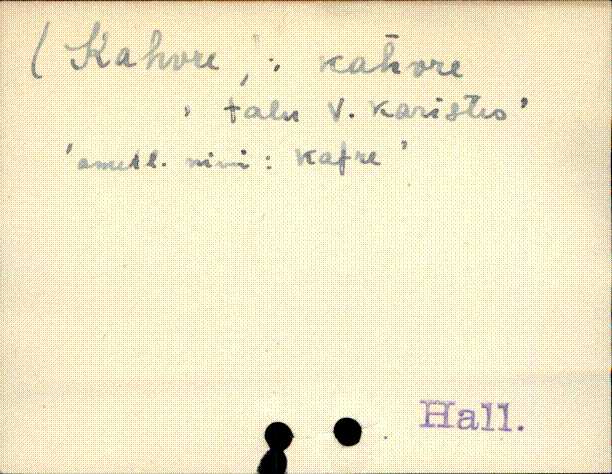 (Kahvre,: kah̄vre
' talu V. Karistes'
'ametl. nimi: Kafre'
Hall.